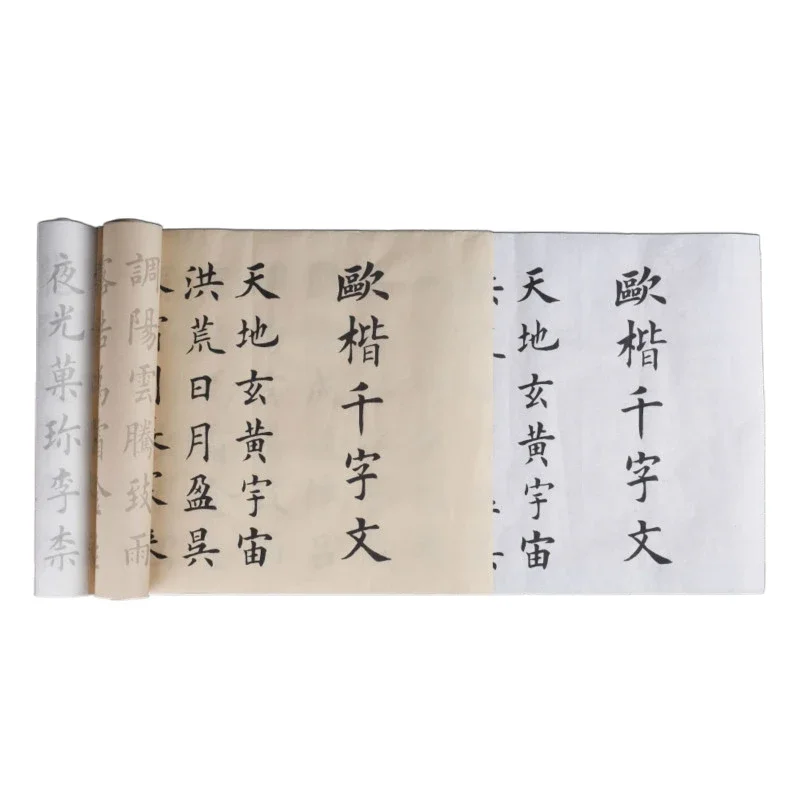 歐楷千字文
天地玄黃宇宙
歐楷千字文
天地玄黃宇宙
洪荒日月盈昃
調陽雲騰致雨
夜光菓珍李柰